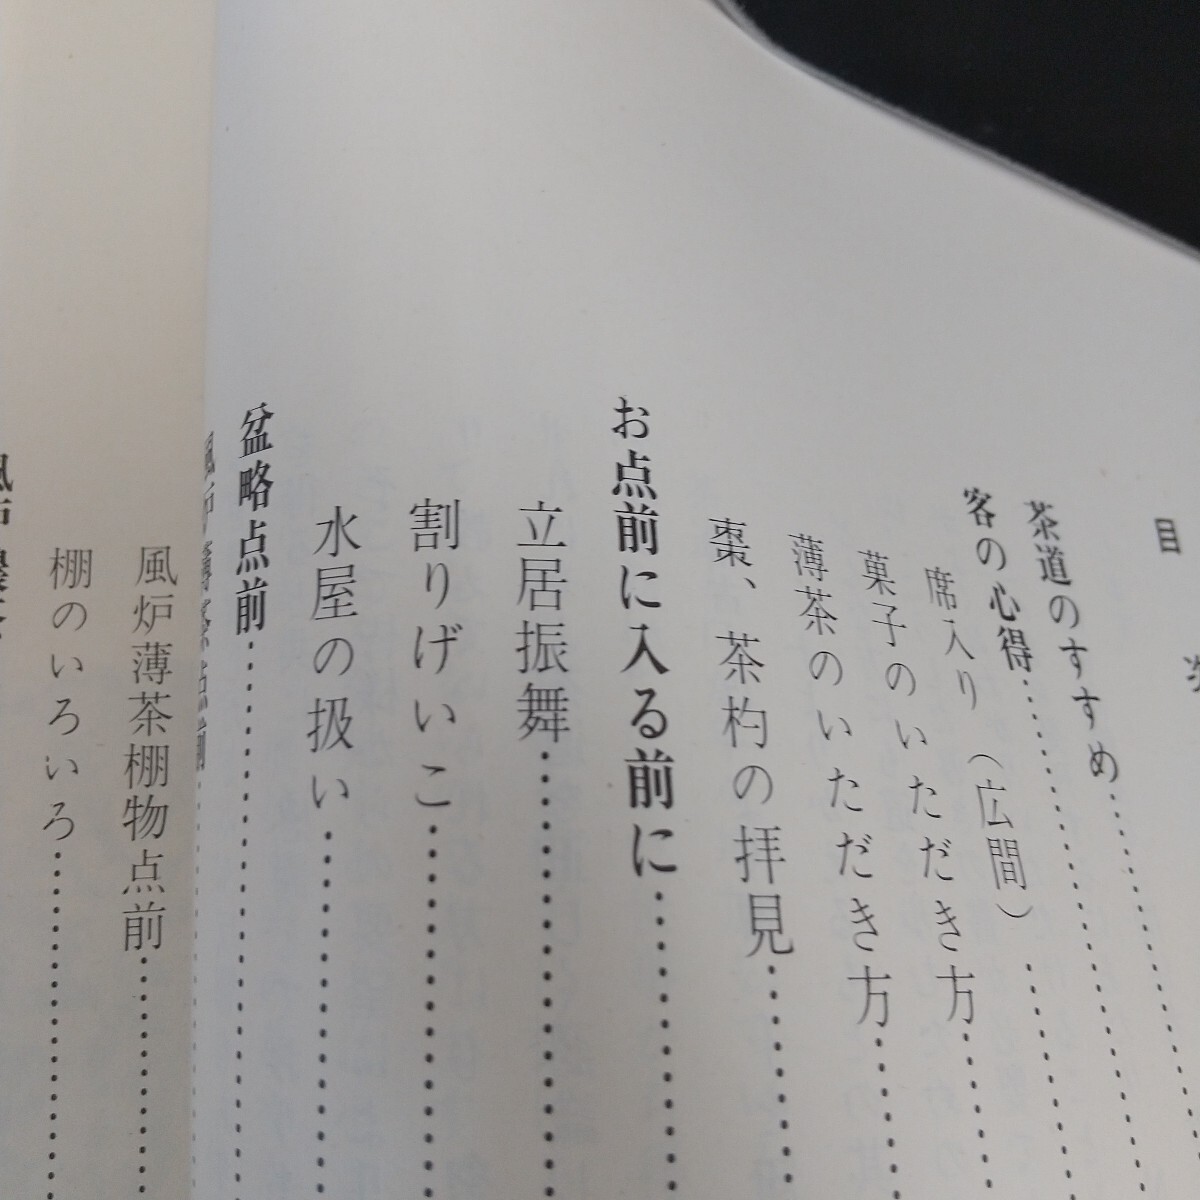 目次
茶道のすすめ
客の心得
席入り（広間）
菓子のいただき方
薄茶のいただき方
棗、茶杓の拝見
お点前に入る前に
立居振舞
割りげいこ
水屋の扱い
盆略点前
風炉薄茶点前
風炉薄茶棚物点前
棚のいろいろ